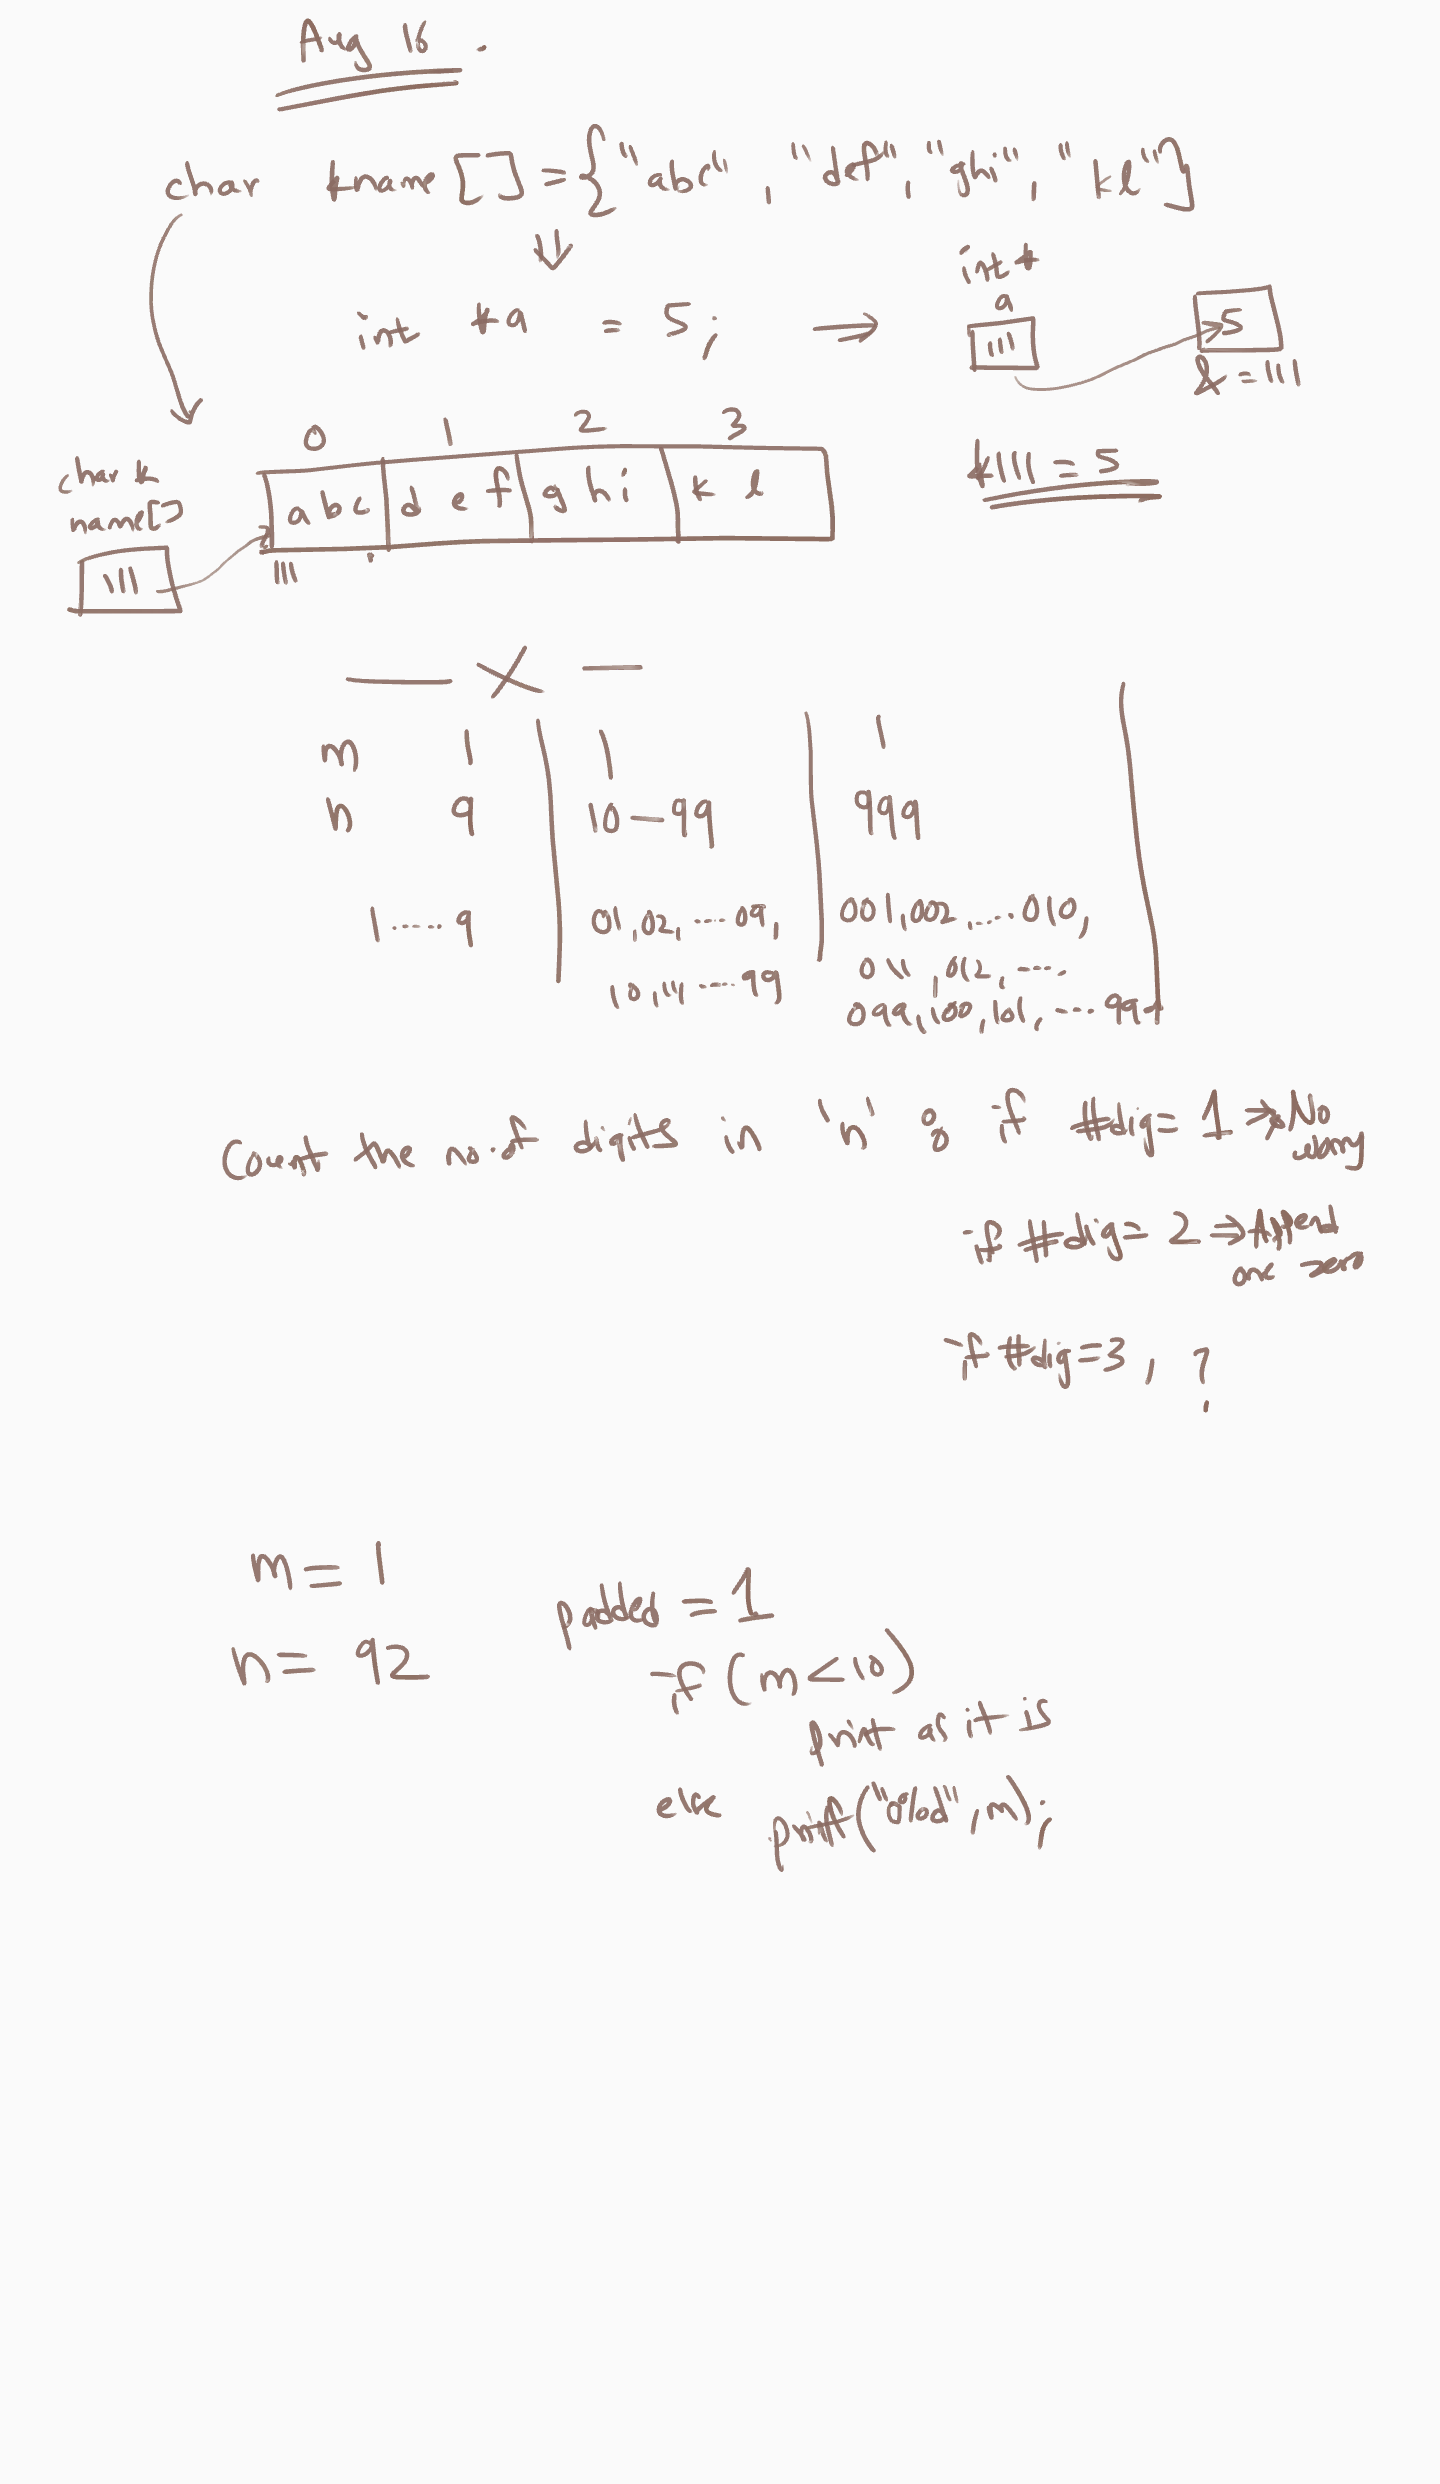 Aug 16 .
char *name[] = {"abc", "def", "ghi", "kl"}
int *a = 5; →
int *
a
111
5
& = 111
*111 = 5
char *
name[]
111
0 1 2 3
abc def ghi kl
111
— X —
m 1 1 1
n 9 10—99 999
1.....9 01,02,....09, 001,002,....010,
10,11....99 011,012,....
099,100,101,...999
Count the no.of digits in 'n' : if #dig= 1 ⇒ No worry
if #dig= 2 ⇒ Append one zero
if #dig=3, ?
m= 1
n= 92
padded = 1
if (m<10)
print as it is
else printf("0%d",m);